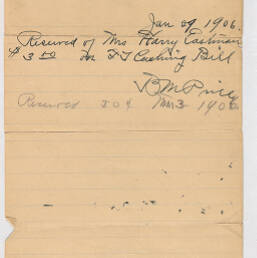 Jan 29 1906.
Received of Mrs Harry Eastman
$3.00 on F J Cushing Bill
B M Price
Received 50¢ 1906